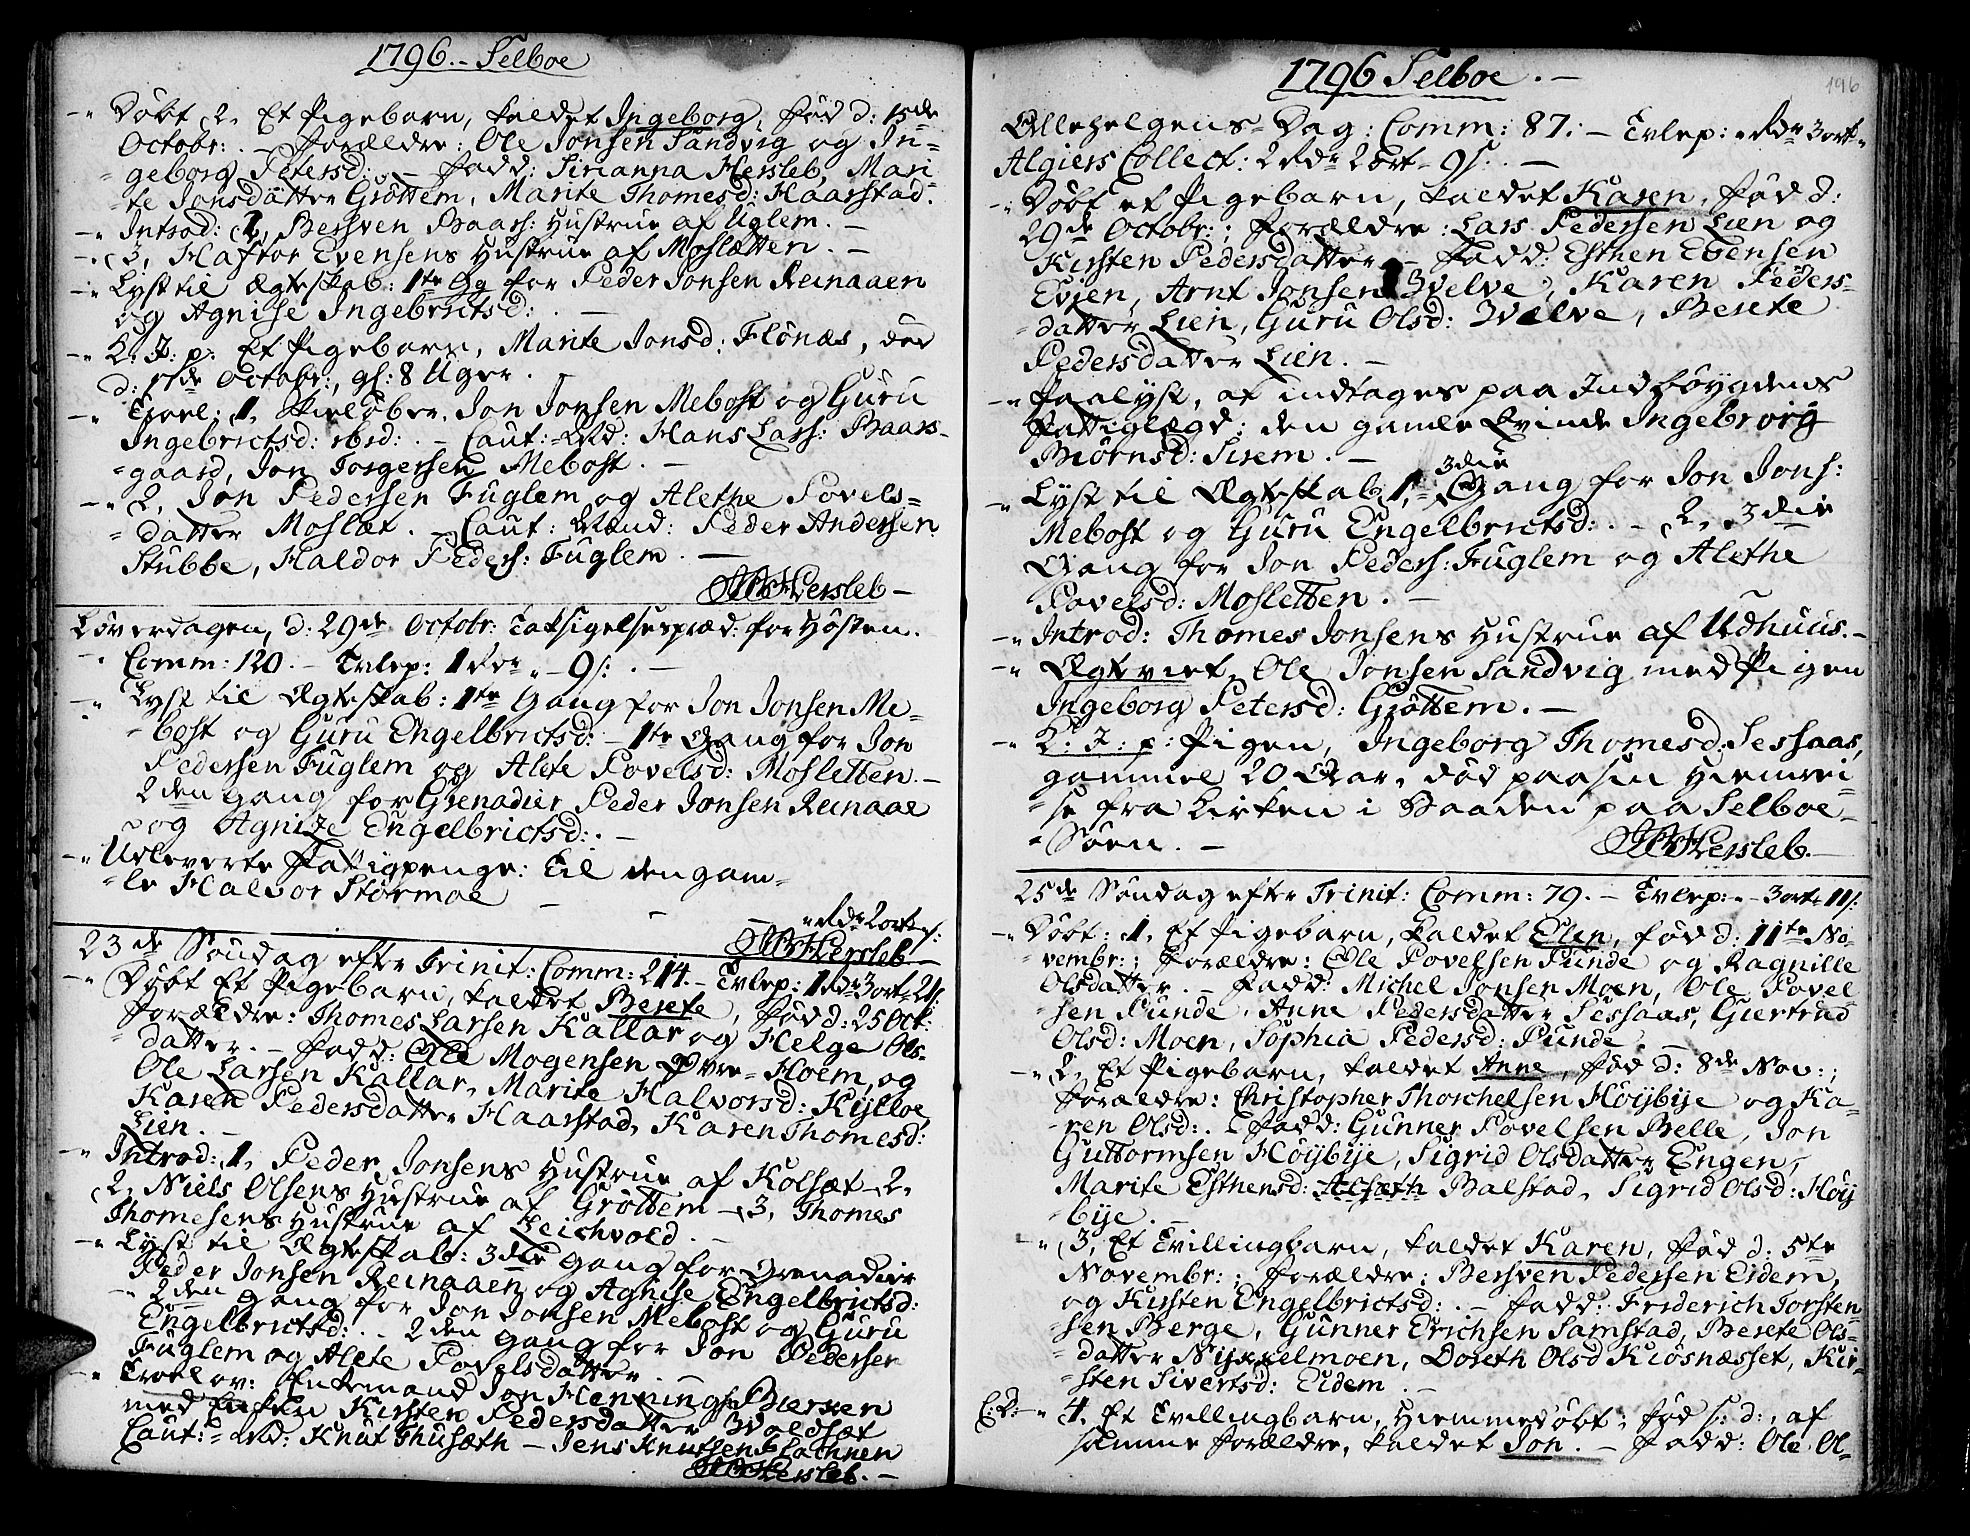 1796. - Selboe
-" Döbt 2, Et Pigebarn, kaldet Ingeborg, fød d: 15de
Octobr: . - forældre: Ole Jonsen Sandvig og In=
=geborg Petersd: . - fadd: Sirianna Hersleb, Mari=
=te Jonsdätter Gröttem, Marite Thomesd: Haarstad.
-" Introd: 1, Bersven Baars: Hustrue af Uglem. -
-" 3, Haftor Evensens Hustrue af Moslætten. -
-" Lyst til Ægteskab: 1te Gg for Peder Jonsen Reinaaen
og Agnise Ingebrictsd: . -
-" B. J: p: Et Pigebarn, Marite Jonsd: Flönæs, død
d: 17de Octobr:, gl: 8 Uger.
-" Trol: 1, Jon Jonsen Mebost og Guru
Ingebrictsd: ibid: . - Caut: Md: Hans Lars: Baars=
=gaard, Jon Torgersen Mebost. -
-" 2, Jon Pedersen Fuglem og Alethe Povels=
=datter Moslæt. - Caut: Mænd: Peder Andersen
Stubbe, Haldor Peders: Fuglem. -
Hersleb -
Löverdagen, d: 29de Octobr: Taksigelsespræd: for Hösten.
Comm: 120. - Tvlep: 1 Rdr " - 9 s: . -
-" Lyst til Ægteskab: 1te Gang for Jon Jonsen Me=
=bost og Guru Engelbrictsd: - 1te Gang for Jon
Pedersen Fuglem og Alete Povelsd: Mosletten. -
2den Gang for Grenadier Peder Jonsen Reinaae
og Agnise Engelbrictsd: . -
-" Udleverte Fattigpenge: Til den gam=
=le Halvor Störmoe -
" Rdr 2 ort " s:
Hersleb
23de Söndag efter Trinit: Comm: 214. - Tvlep: 1 Rdr 3 ort 2 s:
-" Döbt Et Pigebarn, kaldet Berete, fød d: 25 Oct:
forældre: Thomes Larsen Kallar og Helge Ols=
=datter. - fadd: Ole Mogensen Övre=Hoem, og
Ole Larsen Kallar, Marite Halvorsd: Kylloe,
Karen Pedersdatter Haarstad, Karen Thomesd:
Lien. -
-" Introd: 1, Peder Jonsens Hustrue af Kolsæt - 2,
2, Niels Olsens Hustrue af Gröttem - 3, Thomes
Thomesens Hustrue af Leichvold. -
-" Lyst til Ægteskab: 3die Gang for Grenadier
Peder Jonsen Reinaaen og Agnise Engelbrictsd:
- 2den Gang for Jon Jonsen Mebost og Guru
Engelbrictsd: . - 2den Gang for Jon Pedersen
Fuglem og Alete Povelsdatter. -
-" Trolov: Enkemand Jon Hennings: Biersen
med Enken Kirsten Pedersdatter Woldsæt
Caut: Md: Knut Thusæth - Jens Knutsen
Hersleb. -
1796 Selboe. -
196
Allehelgens=Dag: Comm: 87: - Tvlep: " Rdr 3 ort "
Algiers Collect: 2 Rdr 2 ort - 9 s: . -
-" Döbt et Pigebarn, kaldet Karen, fød d:
29de Octobr: ; forældre: Lars Pedersen Lien og
Kirsten Pedersdatter. - fadd: Esthen Ebensen
Evjen, Arnt Jonsen Welve, Karen Peders=
=datter Lien, Guru Olsd: Welve, Berete
Pedersdatter Lien. -
-" Paalyst, at indtages paa Indböygdens
Fattiglægd: den gamle Qvinde Ingebrorg
Biörnsd: Sirem. -
-" Lyst til Ægteskab, 1, 3die Gang for Jon Jons:
Mebost og Guru Engelbrictsd: . - 2, 3die
Gang for Jon Peders: Fuglem og Alethe
Povelsd: Mosletten. -
-" Introd: Thomes Jonsens Hustrue af Udhuus. -
-" Ægteviet, Ole Jonsen Sandvig med Pigen
Ingeborg Petersd: Gröttem. -
-" B: J: p: Pigen, Ingeborg Thomesd: Sessaas,
gammel 20 Aar, død paa sin Hiemrei=
=se fra Kirken i Baaden paa Selboe=
=Söen. -
Hersleb. -
25de Söndag efter Trinit: Comm: 79. - Tvlep: " - 3 ort 11 s:
-" Döbt: 1, Et Pigebarn, kaldet Elen, fød d: 11te No=
=vembr: ; forældre: Ole Povelsen Punde og Ragnille
Olsdatter. - fadd: Michel Jonsen Moen, Ole Povel=
=sen Punde, Anne Pedersdatter Sessaas, Giertrud
Olsd: Moen, Sophia Pedersd: Punde. -
-" 2, Et Pigebarn, kaldet Anne, fød d: 8de Nov: ;
forældre: Christopher Thorchelsen Höybye og Ka=
=ren Olsd: . - fadd: Gunner Povelsen Belle, Jon
Guttormsen Höybye, Sigrid Olsdatter Engen,
Marite Esthensd: Balstad, Sigrid Olsd: Höy
=bye. -
-" 3, Et Tvillingbarn, kaldet Karen, fød d: 5te
Novembr: ; forældre: Bersven Pedersen Eidem,
og Kirsten Engelbrictsd: . - fadd: Friderich Torsten=
=sen Berge, Gunner Erichsen Samstad, Berete Ols=
=datter Nykkelmoen, Doreth Olsd Kiösnæsset, Kir=
=sten Sivertsd: Eidem. -
-" 4, Et Tvillingbarn, Hiemmedöbt, fød s: d:, af
samme forældre, kaldet Jon. - fadd: Ole Ol=